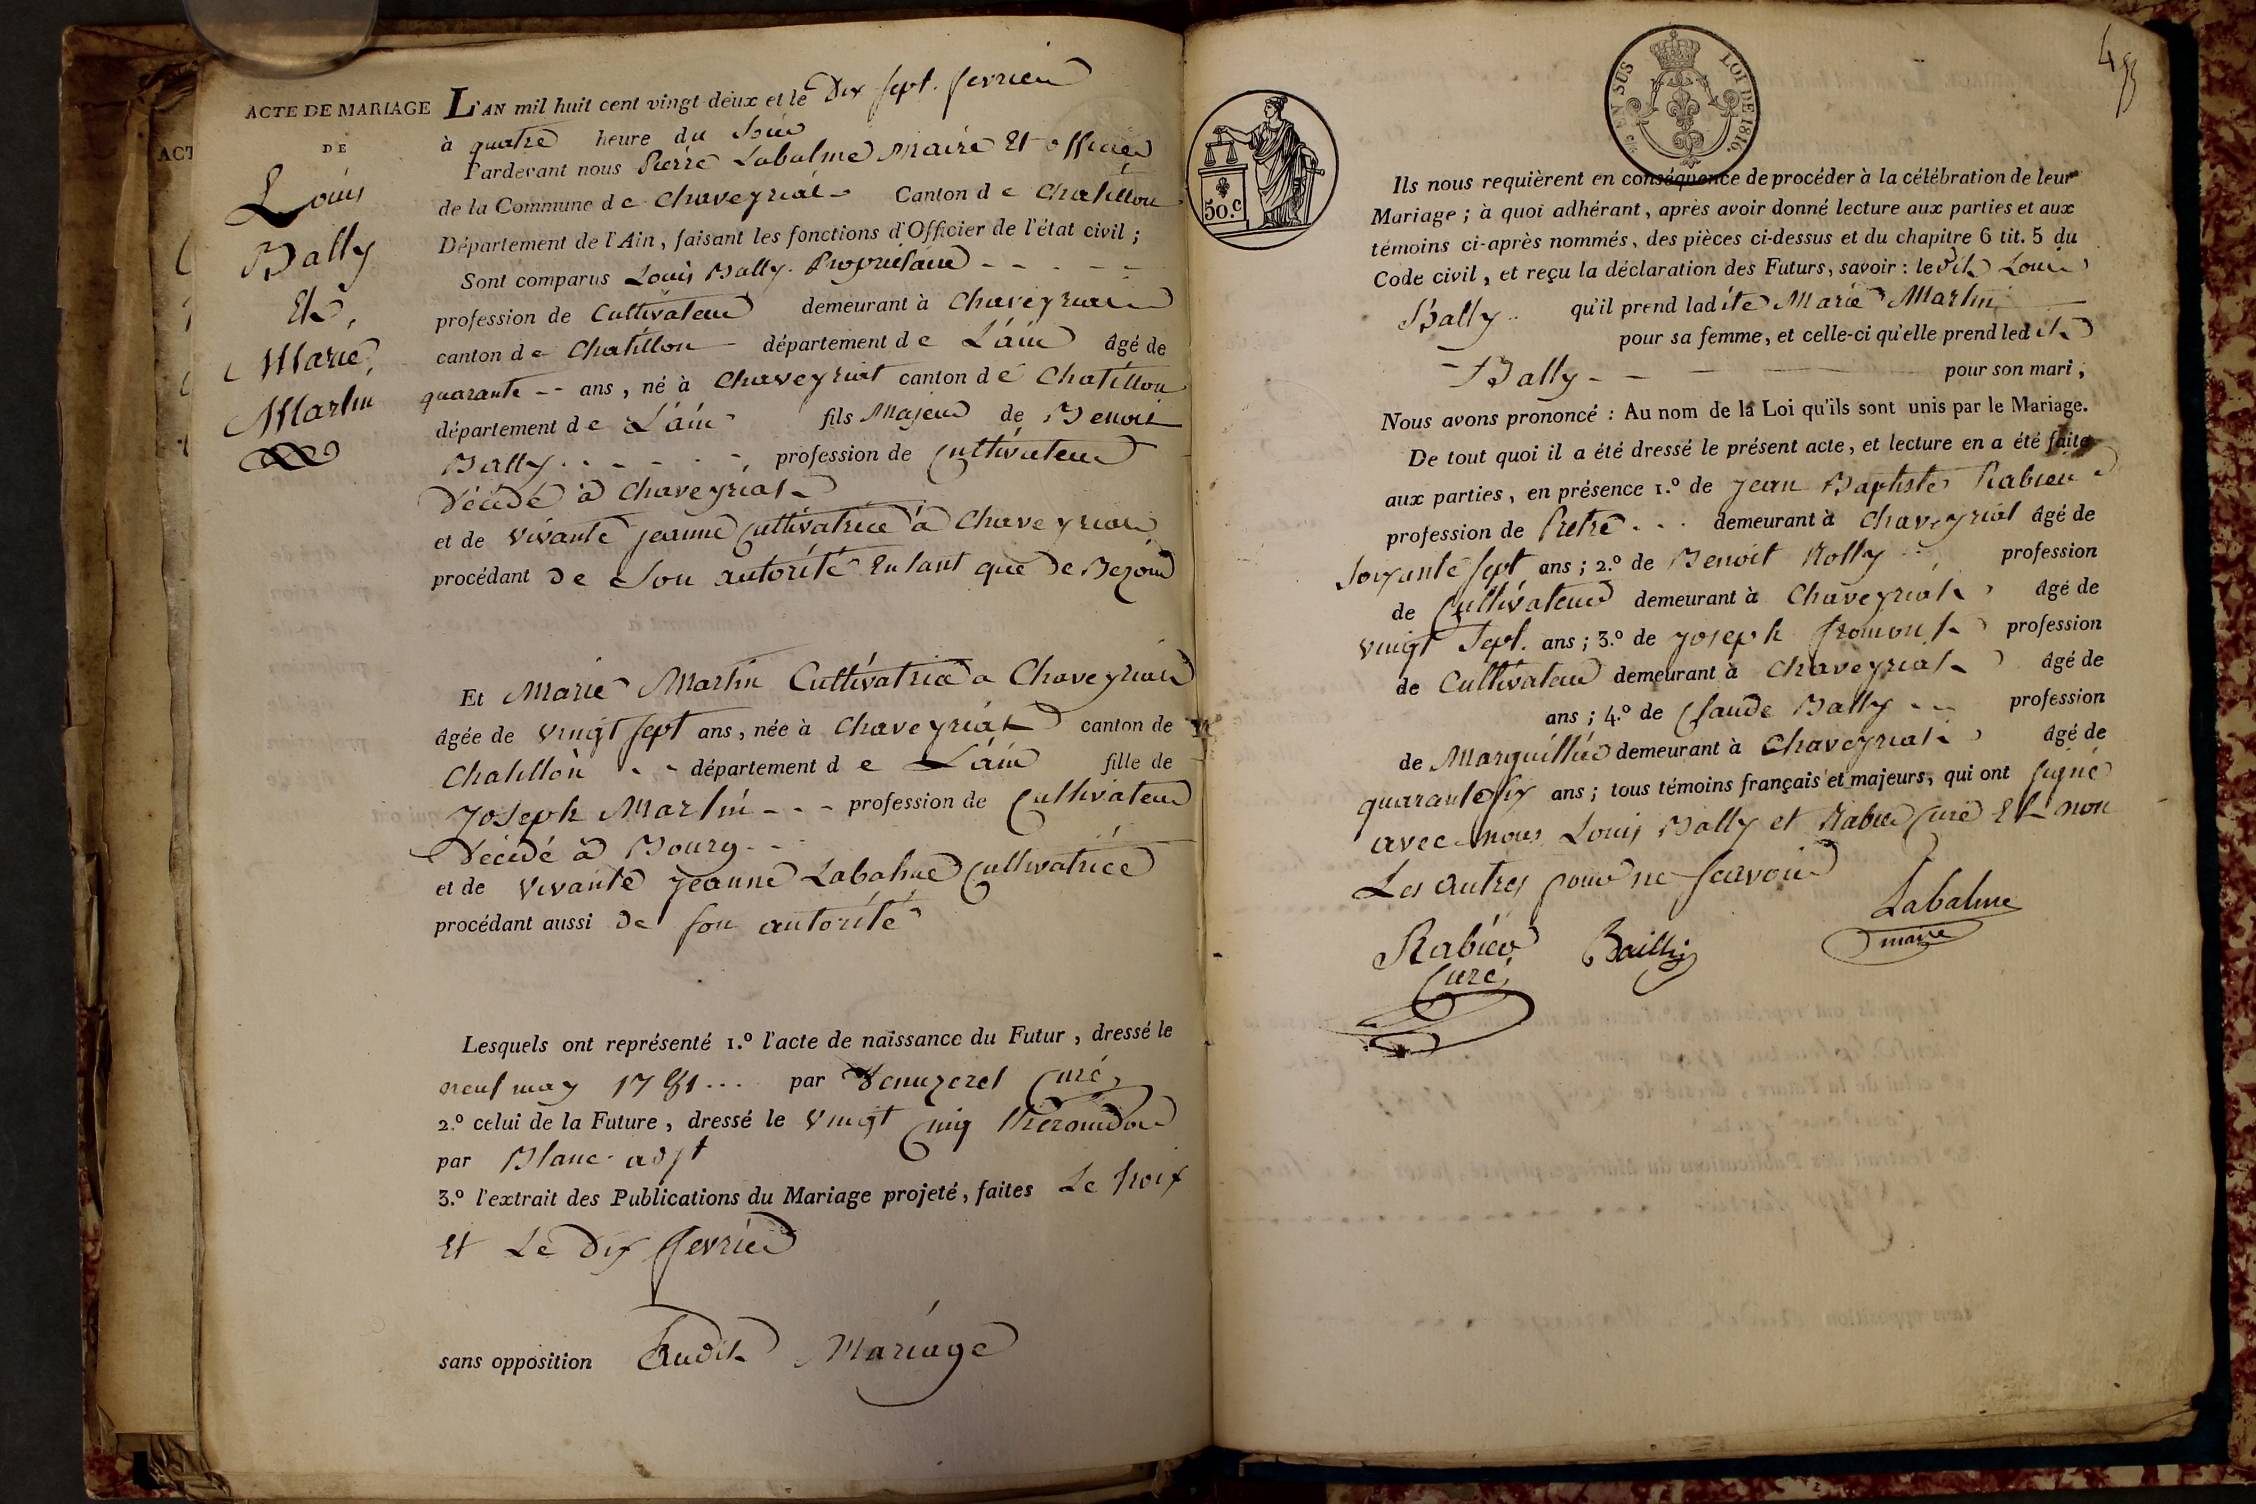 ACTE DE MARIAGE
DE
Louis
Bally
Et
Marie
Martin
L'AN mil huit cent vingt-deux et le Dix sept fevrier
à quatre heure du soir
Pardevant nous Pierre Labalme Maire Et officier
de la Commune de Chaveyriat Canton de Chatillon
Département de l'Ain, faisant les fonctions d'Officier de l'état civil ;
Sont comparus Louis Bally Propriétaire
profession de Cultivateur demeurant à Chaveyriat
canton de Chatillon département de L'ain âgé de
quarante ans, né à Chaveyriat canton de Chatillon
département de L'ain fils Majeur de Benoit
Bally profession de Cultivateur
Décédé à Chaveyriat
et de vivante jeanne Cultivatrice à Chaveyriat
procédant de Son autorité En tant que de Bezoin
Et Marie Martin Cultivatrice a Chaveyriat
âgée de vingt sept ans, née à Chaveyriat canton de
Chatillon département de L'ain fille de
Joseph Martin profession de Cultivateur
Décédé à Bourg
et de vivante jeanne Labalme Cultivatrice
procédant aussi de son autorité
Lesquels ont représenté 1.º l'acte de naissance du Futur, dressé le
neuf may 1781 par Curé
2.º celui de la Future, dressé le vingt Cinq
par Blanc adjt
3.º l'extrait des Publications du Mariage projeté, faites Le trois
Et Le Dix fevrier
sans opposition Audit Mariage
50.c
EN SUS LOI DE 1816.
Ils nous requièrent en conséquence de procéder à la célébration de leur
Mariage ; à quoi adhérant, après avoir donné lecture aux parties et aux
témoins ci-après nommés, des pièces ci-dessus et du chapitre 6 tit. 5 du
Code civil, et reçu la déclaration des Futurs, savoir : le dit Louis
Bally qu'il prend ladite Marie Martin
pour sa femme, et celle-ci qu'elle prend ledit
Bally pour son mari ;
Nous avons prononcé : Au nom de la Loi qu'ils sont unis par le Mariage.
De tout quoi il a été dressé le présent acte, et lecture en a été faite
aux parties, en présence 1.º de Jean Baptiste Rabieu
profession de Pretre demeurant à Chaveyriat âgé de
Soixante sept ans ; 2.º de Benoit Rolly profession
de Cultivateur demeurant à Chaveyriat âgé de
vingt sept ans ; 3.º de Joseph fromont profession
de Cultivateur demeurant à Chaveyriat âgé de
ans ; 4.º de Claude Bally profession
de Marguillier demeurant à Chaveyriat âgé de
quarante six ans ; tous témoins français et majeurs, qui ont signé
avec nous Louis Bally et Rabieu Curé Et non
Les autres pour ne scavoir
Labalme
maire
Rabieu Bailly
Curé